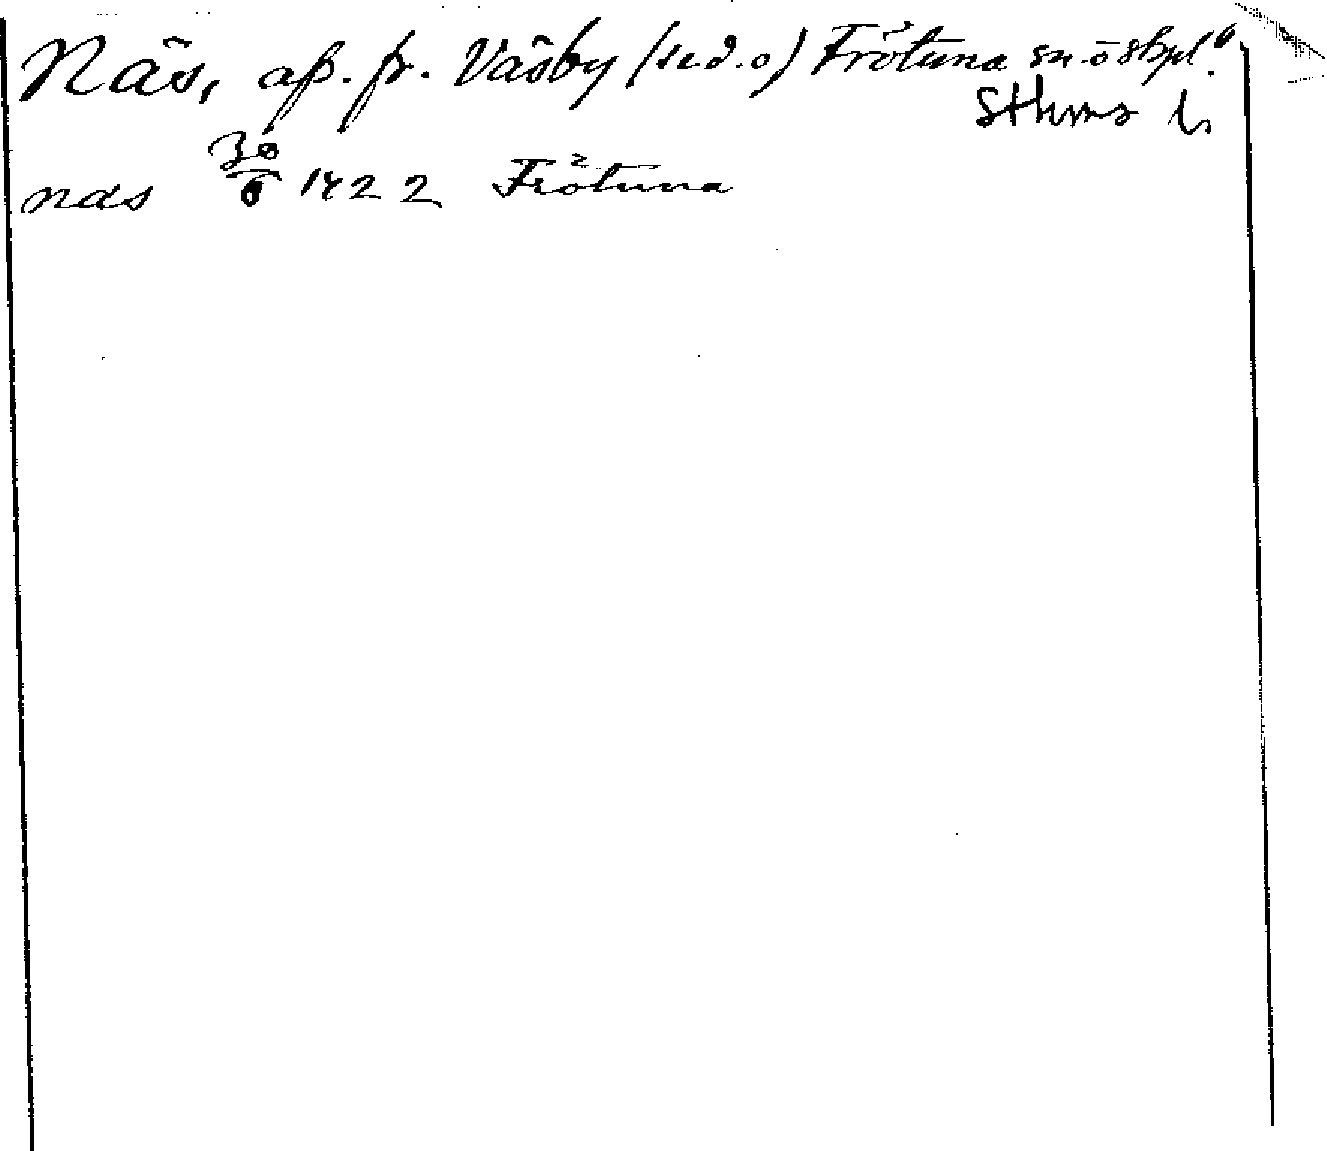 Näs, af. fr. Väsby (se d. o) Frötuna sn. o skpl.
Sthms l.
nas 30/6 1422 Frötuna